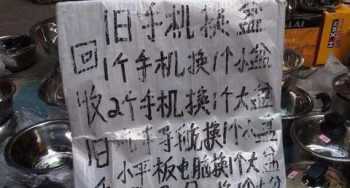 旧手机换盆
回1个手机换1个小盆
收2个手机换1个大盆
旧 导航换1个小盆
小平板电脑换1个大盆